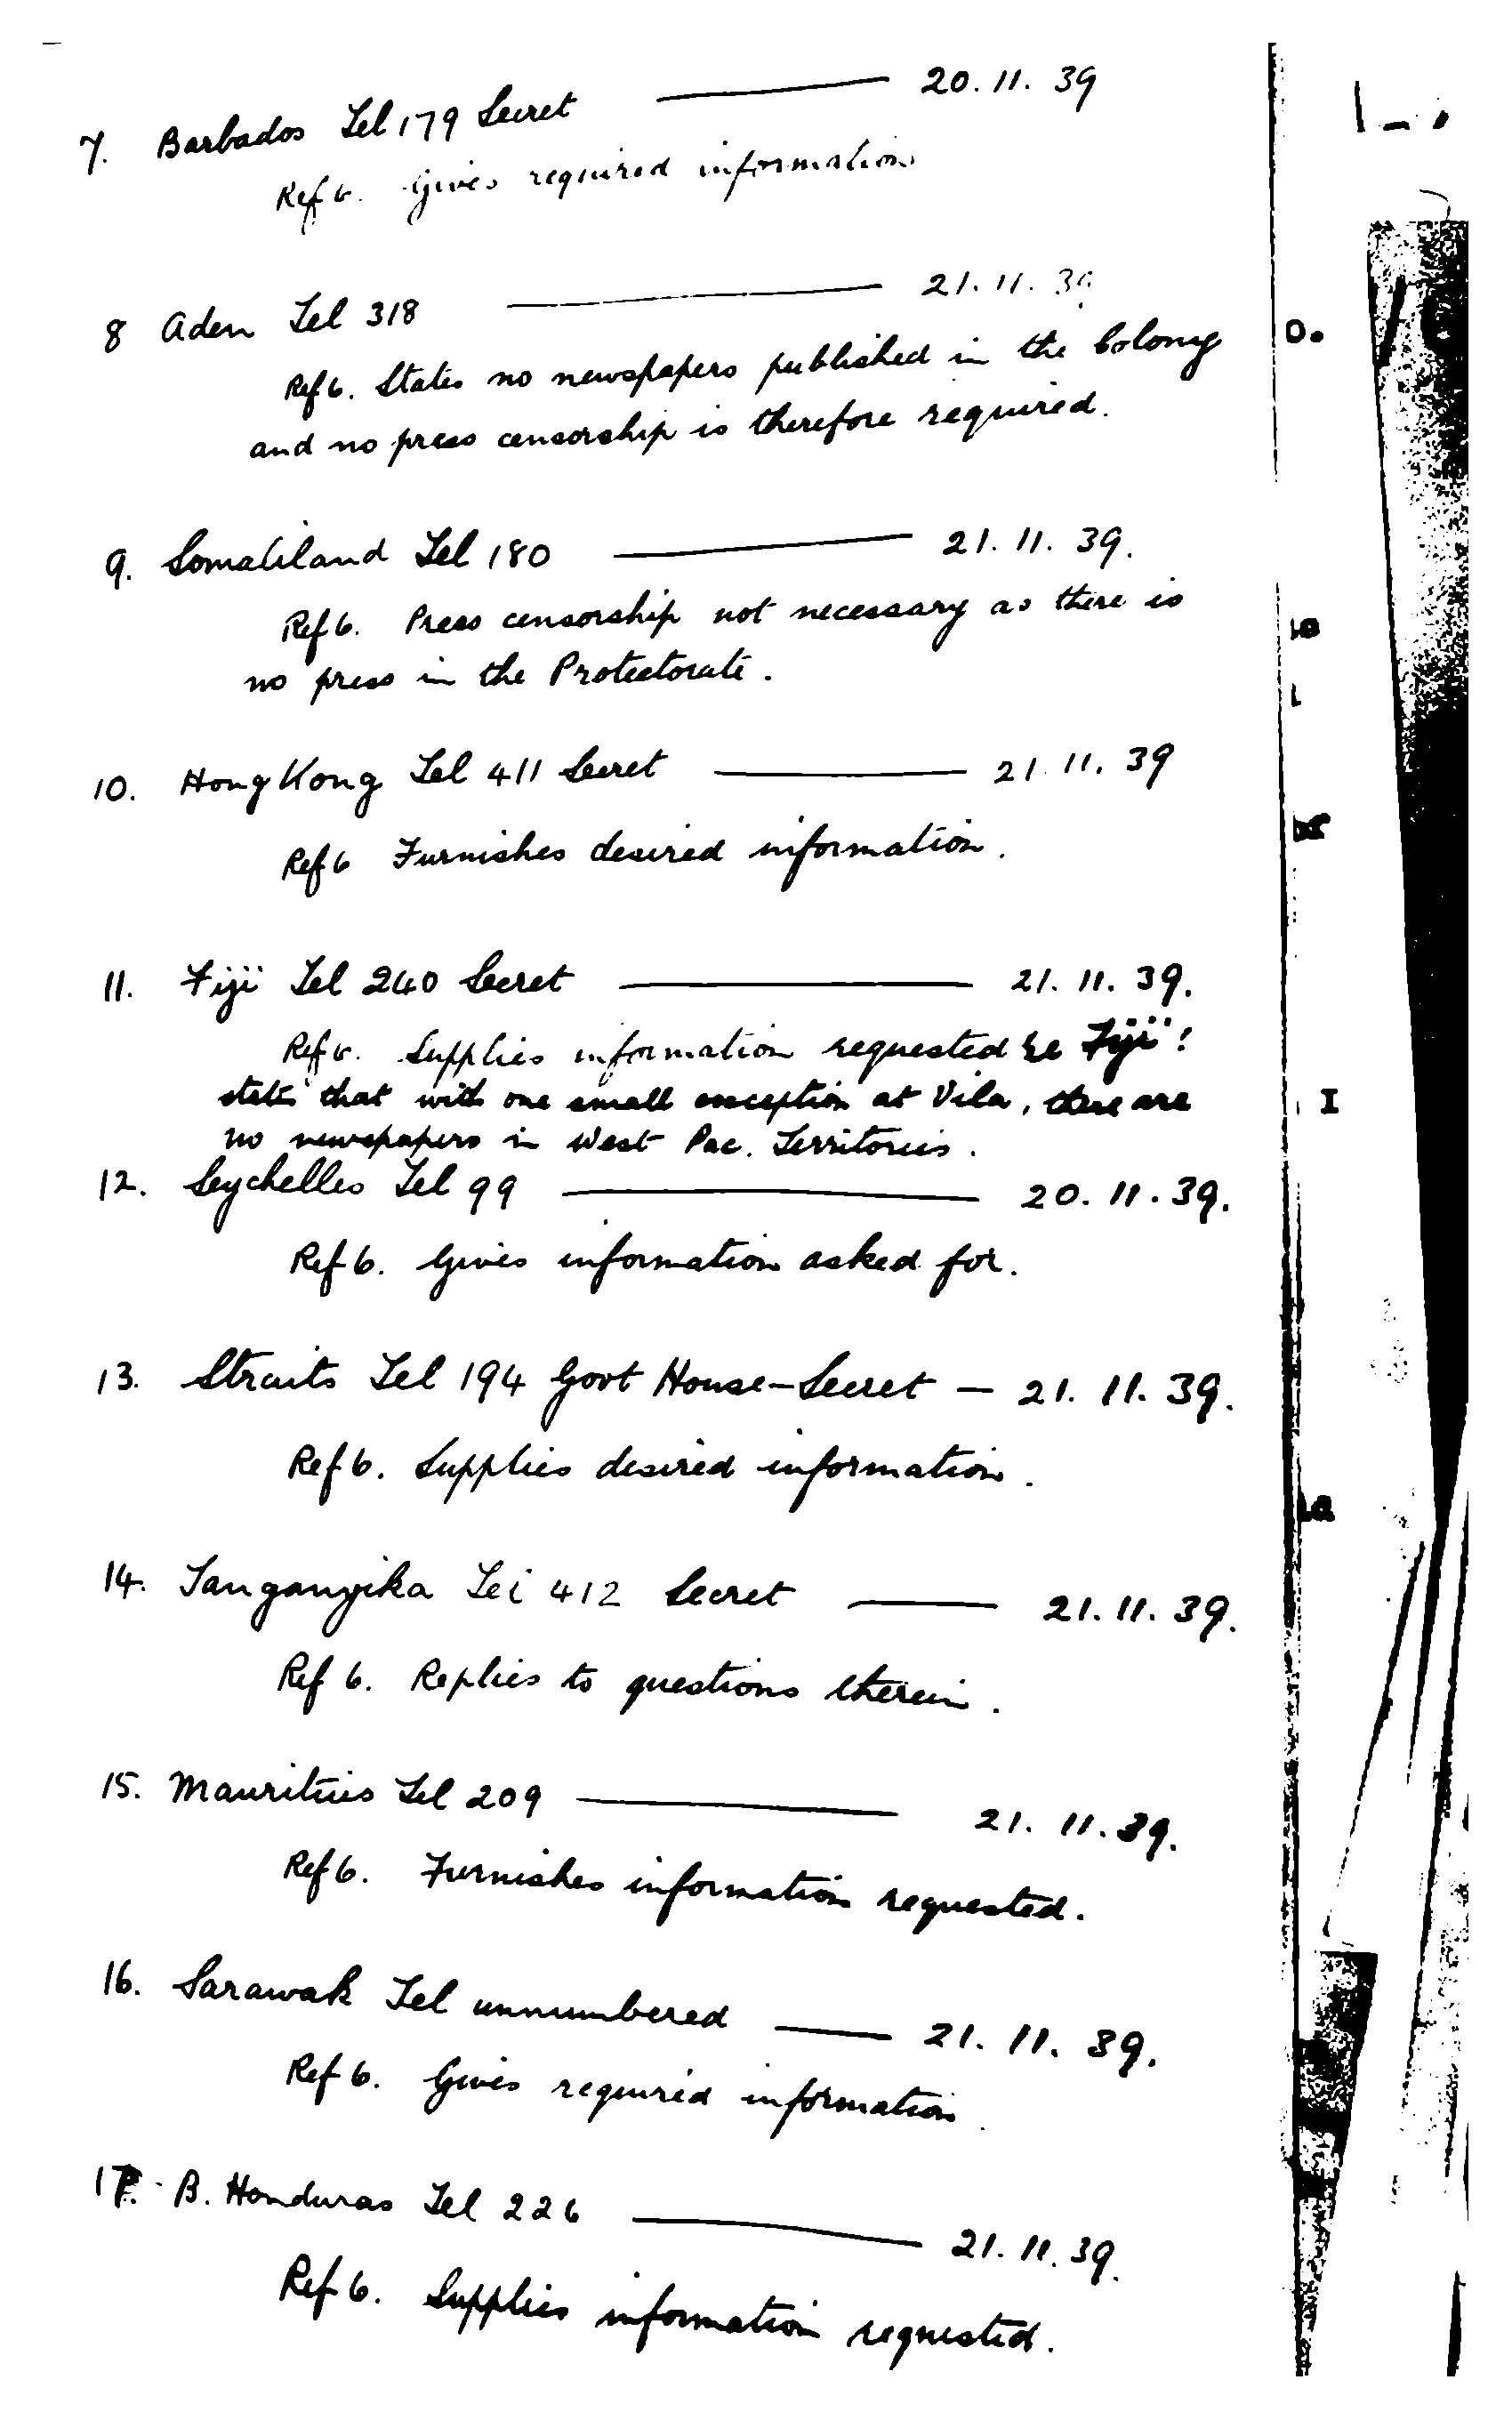 7. Barbados Tel 179 Secret — 20. 11. 39
Ref 6. Gives required information
8 Aden Tel 318 — 21. 11. 39
Ref 6. States no newspapers published in the Colony
and no press censorship is therefore required.
9. Somaliland Tel 180 — 21. 11. 39.
Ref 6. Press censorship not necessary as there is
no press in the Protectorate.
10. Hong Kong Tel 411 Secret — 21. 11. 39
Ref 6 Furnishes desired information.
11. Fiji Tel 240 Secret — 21. 11. 39.
Ref 6. Supplies information requested re Fiji:
states that with one small exception at Vila, there are
no newspapers in West Pac. Territories.
12. Seychelles Tel 99 — 20. 11. 39.
Ref 6. Gives information asked for.
13. Straits Tel 194 Govt House-Secret — 21. 11. 39.
Ref 6. Supplies desired information.
14. Tanganyika Tel 412 Secret — 21. 11. 39.
Ref 6. Replies to questions therein.
15. Mauritius Tel 209 — 21. 11. 39.
Ref 6. Furnishes information requested.
16. Sarawak Tel unnumbered — 21. 11. 39.
Ref 6. Gives required information.
17. B. Honduras Tel 226 — 21. 11. 39.
Ref 6. Supplies information requested.